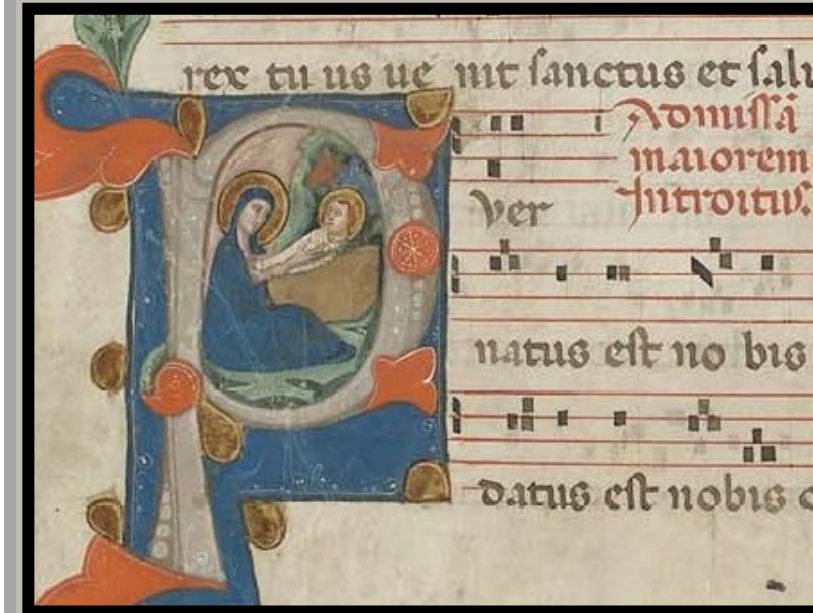 rex tu us ue nit sanctus et salu
Ad missã
maiorem
Introitus.
P
ver
natus est no bis
datus est nobis